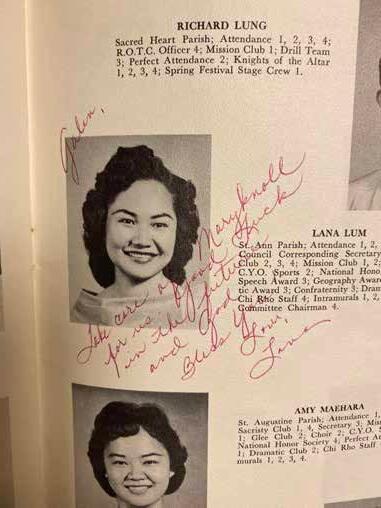 RICHARD LUNG
Sacred Heart Parish; Attendance 1, 2, 3, 4;
R.O.T.C. Officer 4; Mission Club 1; Drill Team
3; Perfect Attendance 2; Knights of the Altar
1, 2, 3, 4; Spring Festival Stage Crew 1.
Galen,
Take care of Maryknoll
for us. Good Luck
in the future
and God
Bless You.
Love,
Lana
LANA LUM
St. Ann Parish; Attendance 1, 2,
Council Corresponding Secretary
Club 2, 3, 4; Mission Club 1, 2;
C.Y.O. Sports 2; National Hono
Speech Award 3; Geography Awar
tic Award 3; Confraternity 3; Dram
Chi Rho Staff 4; Intramurals 1, 2,
Committee Chairman 4.
AMY MAEHARA
St. Augustine Parish; Attendance 1,
Sacristy Club 1, 4, Secretary 3; Miss
1; Glee Club 2; Choir 2; C.Y.O.
National Honor Society 4; Perfect At
1; Dramatic Club 2; Chi Rho Staff
murals 1, 2, 3, 4.